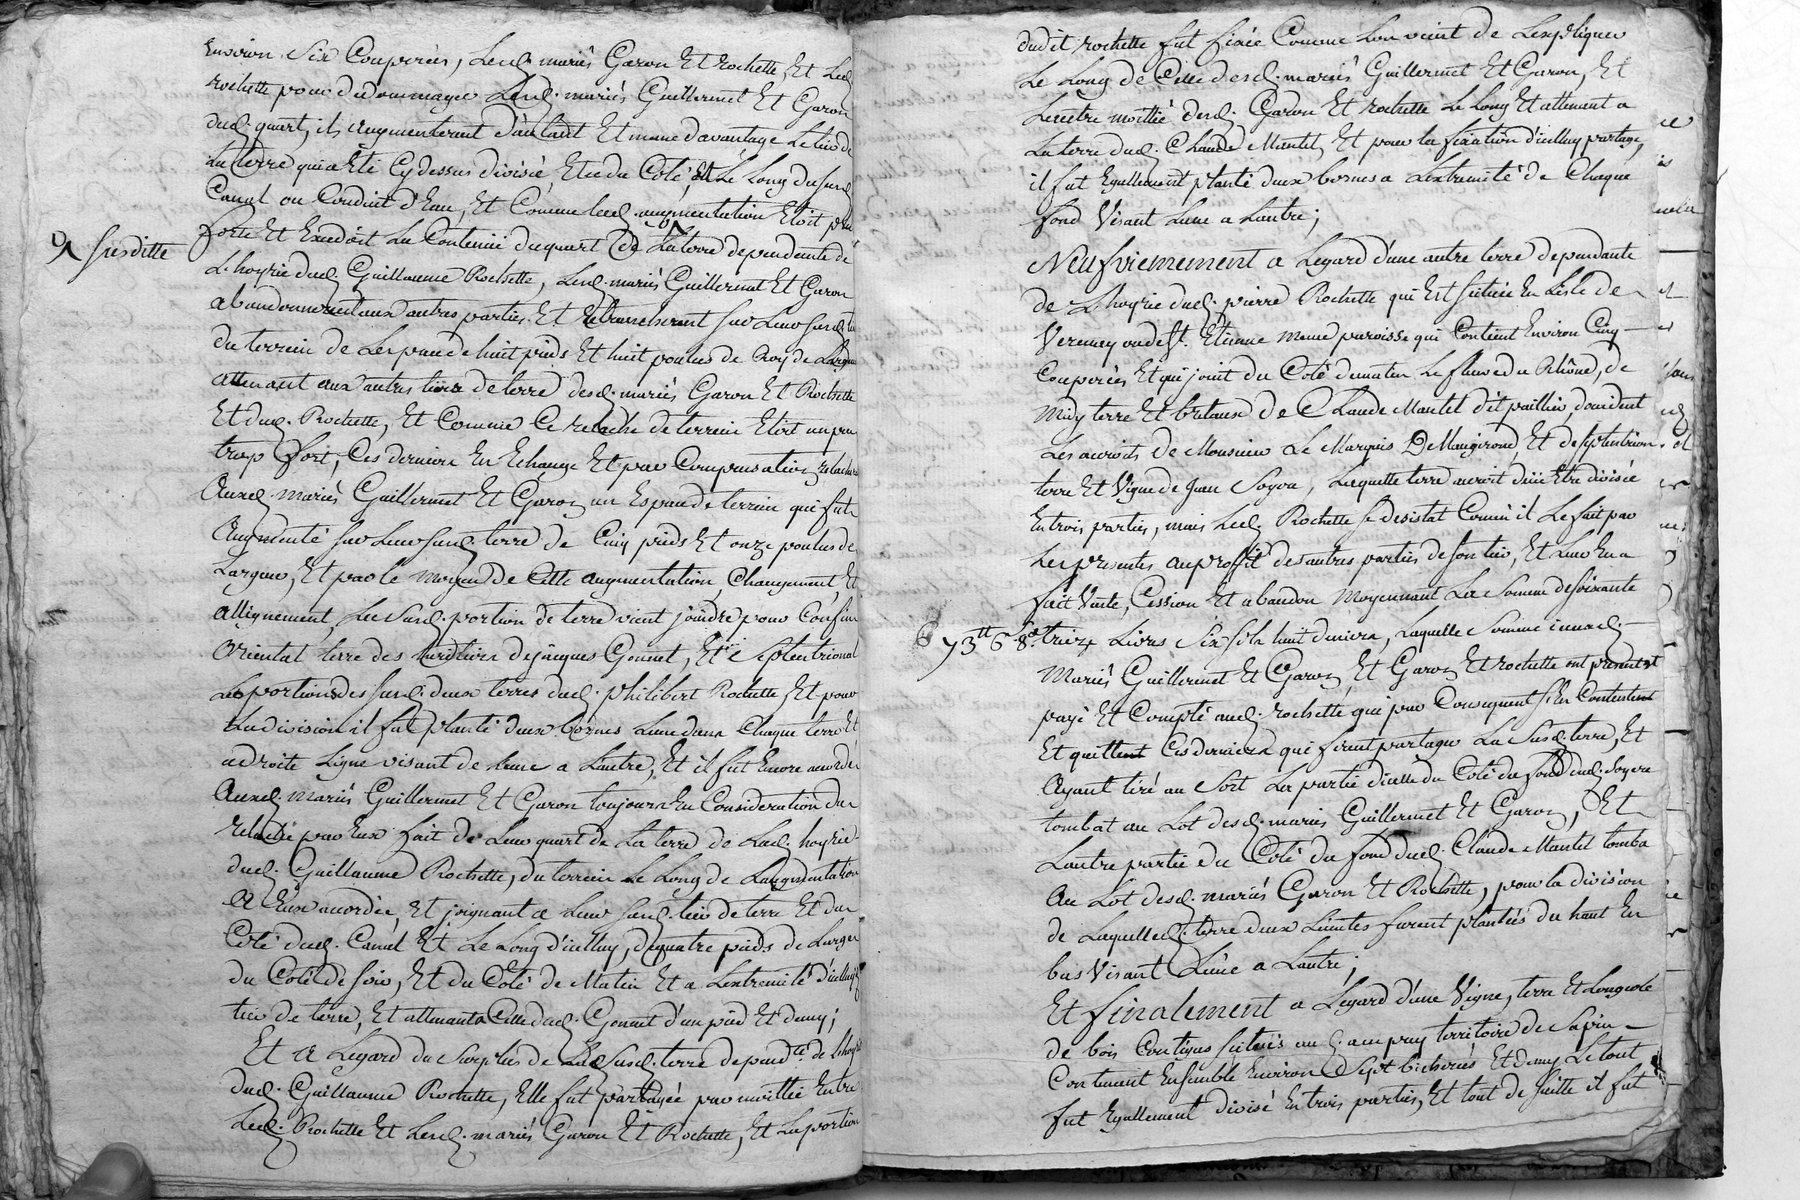 Environ Six Couperées, Lesd. mariés Garon Et Rochette, Et Led.
rochette pour dedommager Lesd. mariés Guillermet Et Garon
dud. quart, ils augmenterent d'autant Et meme d'avantage Le tiers de
La terre qui a Eté Cy dessus divisée, Et ce du Coté, Et Le Long du susd.
Canal ou Conduit d'Eau, Et Comme lad. augmentation Etoit plus
forte Et Excedoit La Contenüe du quart de La terre dependante de
susditte
L'hoyrie dud. Guillaume Rochette, Lesd. mariés Guillermet Et Garon
abandonnerent aux autres parties Et retrancherent sur Leur susd.
du terrein de Lespace de huit pieds Et huit pouces de Roy de Largeur
attenant aux autres tiers de terre desd. mariés Garon Et Rochette
Et dud. Rochette, Et Comme Ce relache de terrein Etoit un peu
trop fort, Ces derniers En Echange Et par Compensation relacherent
Auxd. mariés Guillermet Et Garon un Espace de terrein qui fut
Augmenté sur Leur susd. terre de Cinq pieds Et onze pouces de
Largeur, Et par le moyen de Cette augmentation, Changement, Et
allignement, La susd. portion de terre vient joindre pour Confin
Oriental terre des heritiers de jacques Gonnet, Et Septentrional
Les portions des susd. deux terres dud. philibert Rochette, Et pour
La division il fut planté deux bornes Lune dans Chaque terre Et
a droite Ligne visant de Lune a Lautre, Et il fut Encore accordé
Auxd. Mariés Guillermet Et Garon toujours En Consideration du
relaché par Eux fait de Leur quart de La terre de Lad. hoyrie
dud. Guillaume Rochette, du terrein Le Long de Laugmentation
a Eux accordée, Et joignant a Leur susd. tiers de terre Et du
Coté dud. Canal Et Le Long d'icelluy, de quatre pieds de Larger
du Coté de soir, Et du Coté de Matin Et a Lextremité d'icelluy
tiers de terre, Et attenant a Celle dud. Gonnet d'un pied Et demy;
Et a Legard du Surplus de La susd. terre depend.te de L'hoyrie
dud. Guillaume Rochette, Elle fut partagée par moittié Entre
Led. Rochette Et Lesd. mariés Garon Et Rochette, Et La portion
dudit rochette fut fixée Comme Lon vient de Lexpliquer
Le Long de Celle desd. mariés Guillermet Et Garon, Et
Lautre moittié desd. Garon Et rochette Le Long Et attenant a
La terre dud. Claude Mantel, Et pour la fixation d'icelluy partage,
il fut Egallement planté deux bornes a Lextremité de Chaque
fond Visant Lune a Lautre;
Neufviemement a Legard d'une autre terre dependante
de L'hoyrie dud. pierre Rochette qui Est scituée En Lisle de
Verenay ou de St. Etienne meme paroisse qui Contient Environ Cinq
Couperées Et qui joint du Coté du matin Le fleuve du Rhône, de
midy terre Et broteaux de Claude Mantel dit paillier, doccident
Les acroits de Monsieur Le Marquis De Maugiron, Et de septentrion
terre Et Vigne de Jean Soyer, Laquelle terre auroit dûë Etre divisée
En trois parties, mais Led. Rochette se desistat Comme il Le fait par
Les presentes au proffit des autres parties de son tiers, Et Leur En a
fait Vente, Cession Et abandon Moyennant La Somme de soixante
73tt 6 8d treize Livres Six sols huit deniers, Laquelle Somme iceuxd.
Mariés Guillermet Et Garon, Et Garon Et rochette ont presentement
payé Et Compté aud. rochette qui par Consequent s'En Contentent
Et quittent Ces derniers qui firent partager La Susd. terre, Et
Ayant tiré au Sort La partie d'icelle du Coté du fond dud. Soyere
tombat au Lot desd. mariés Guillermet Et Garon, Et
Lautre partie du Coté du fond dud. Claude Mantel tomba
Au Lot desd. mariés Garon Et Rochette, pour la division
de Laquelled. terre deux Limites furent plantées du haut En
bas Visant Lûne a Lautre;
Et finalement a Legard d'une Vigne, terre Et Longeole
de bois Contigus scitués au territoire de
Contenant Ensemble Environ Sept bicherées Et demy Le tout
fut Egallement divisé En trois parties, Et tout de suitte il fut